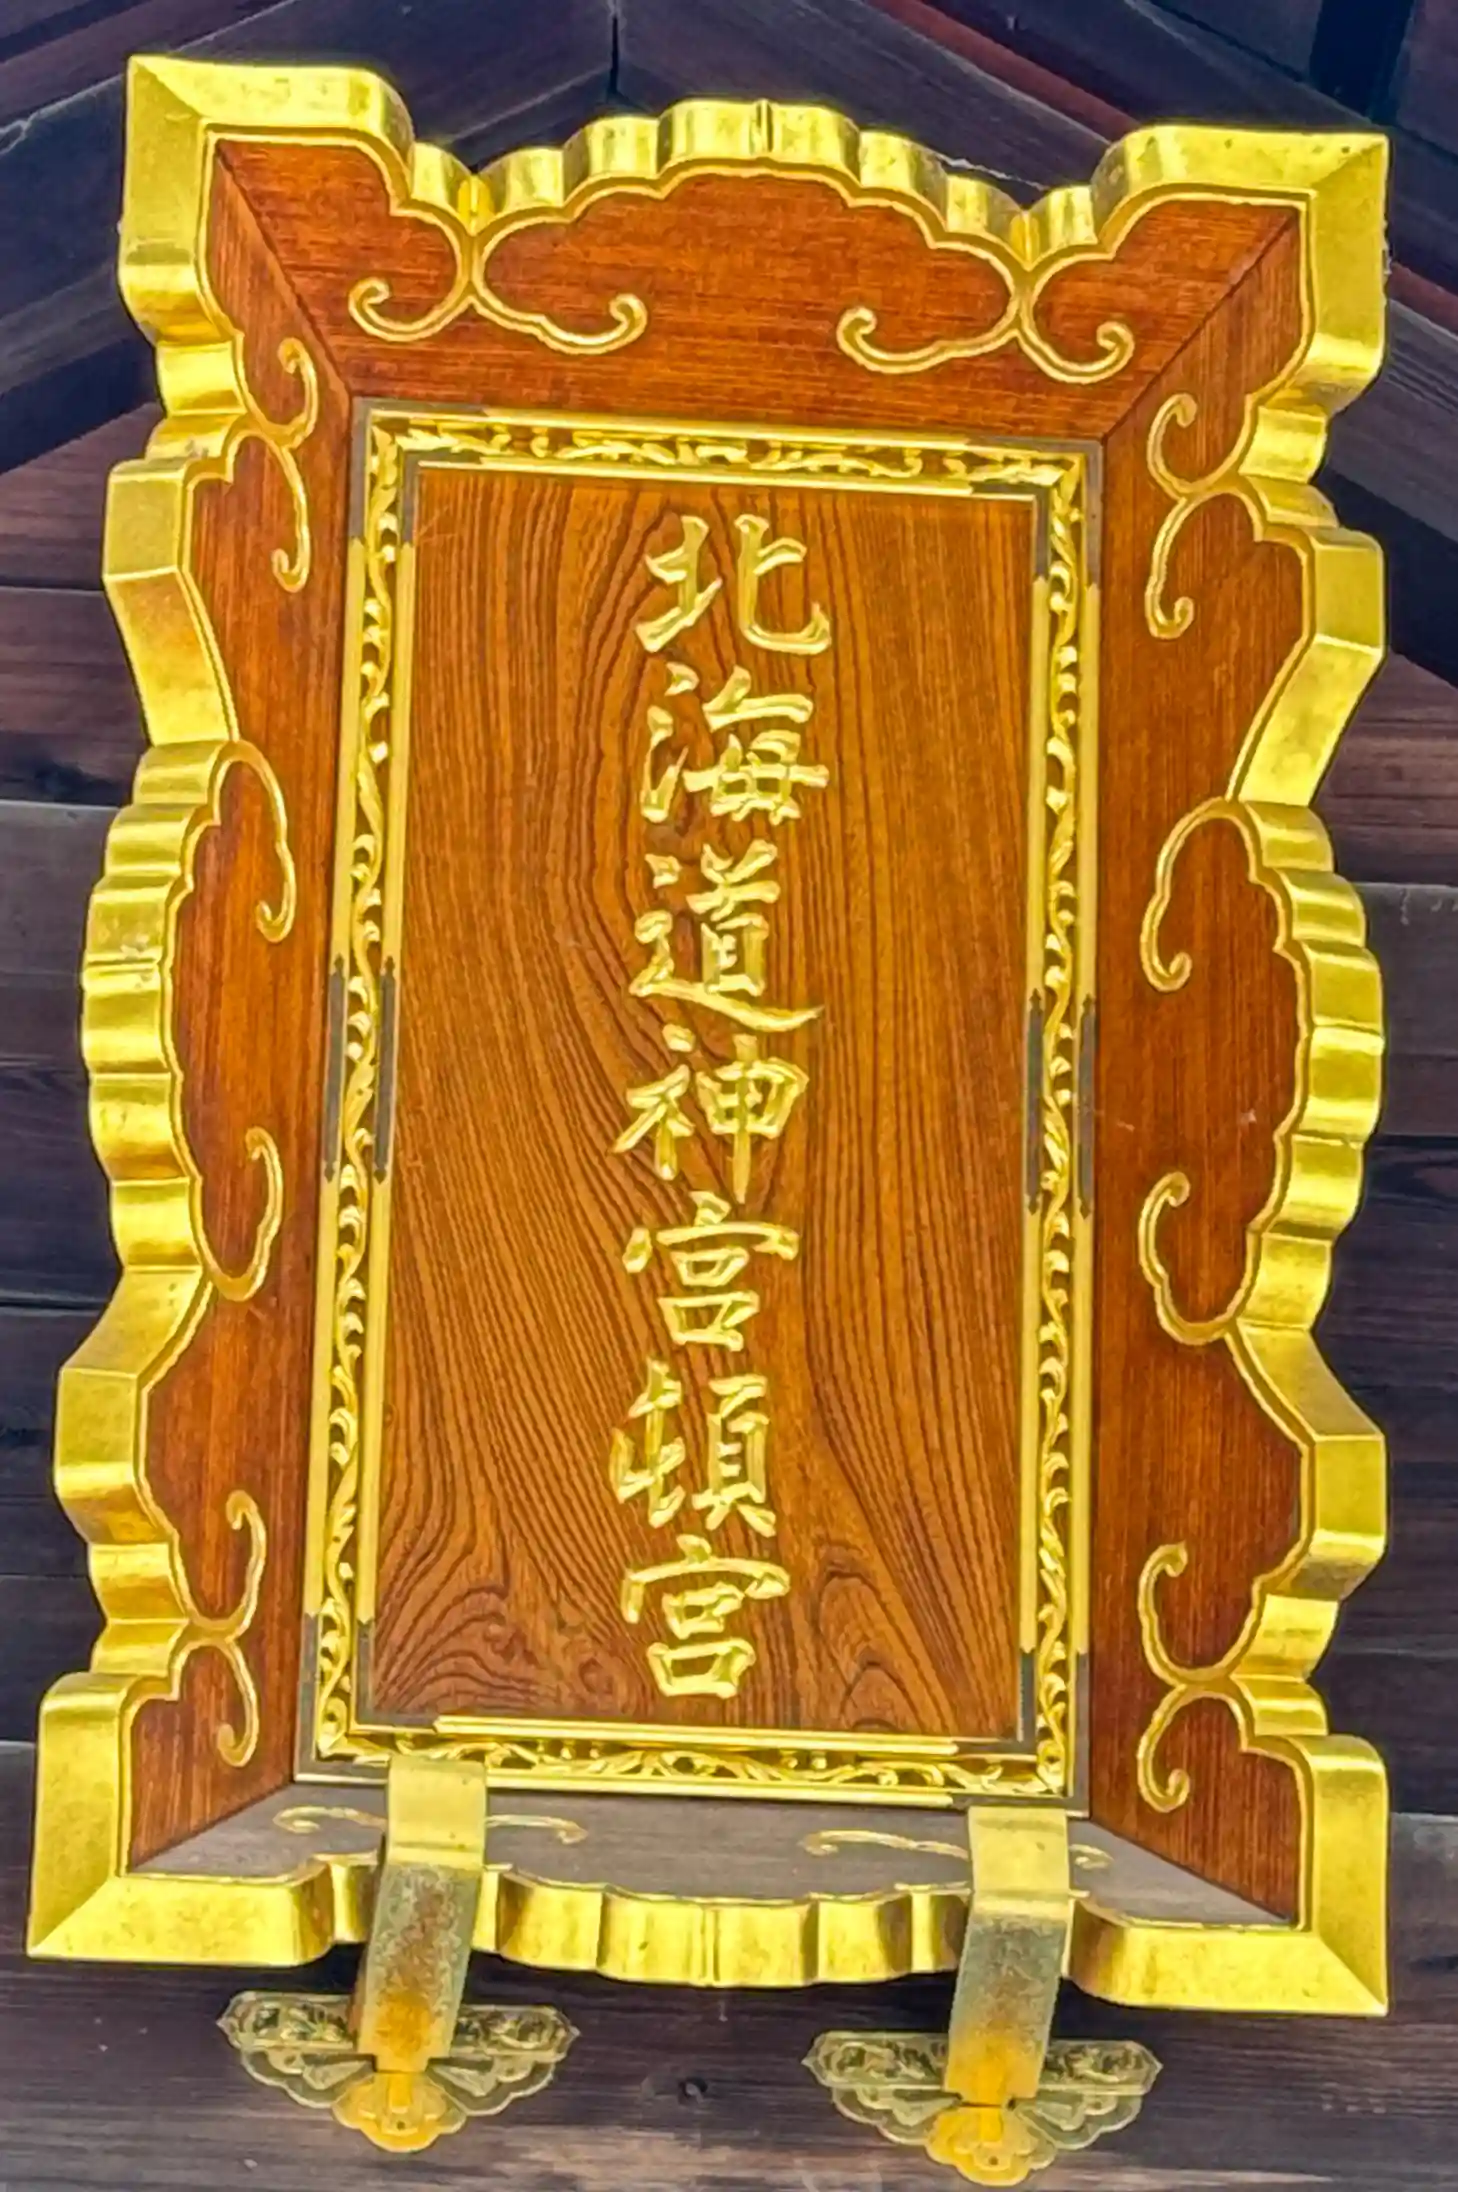 北海道神宮頓宮